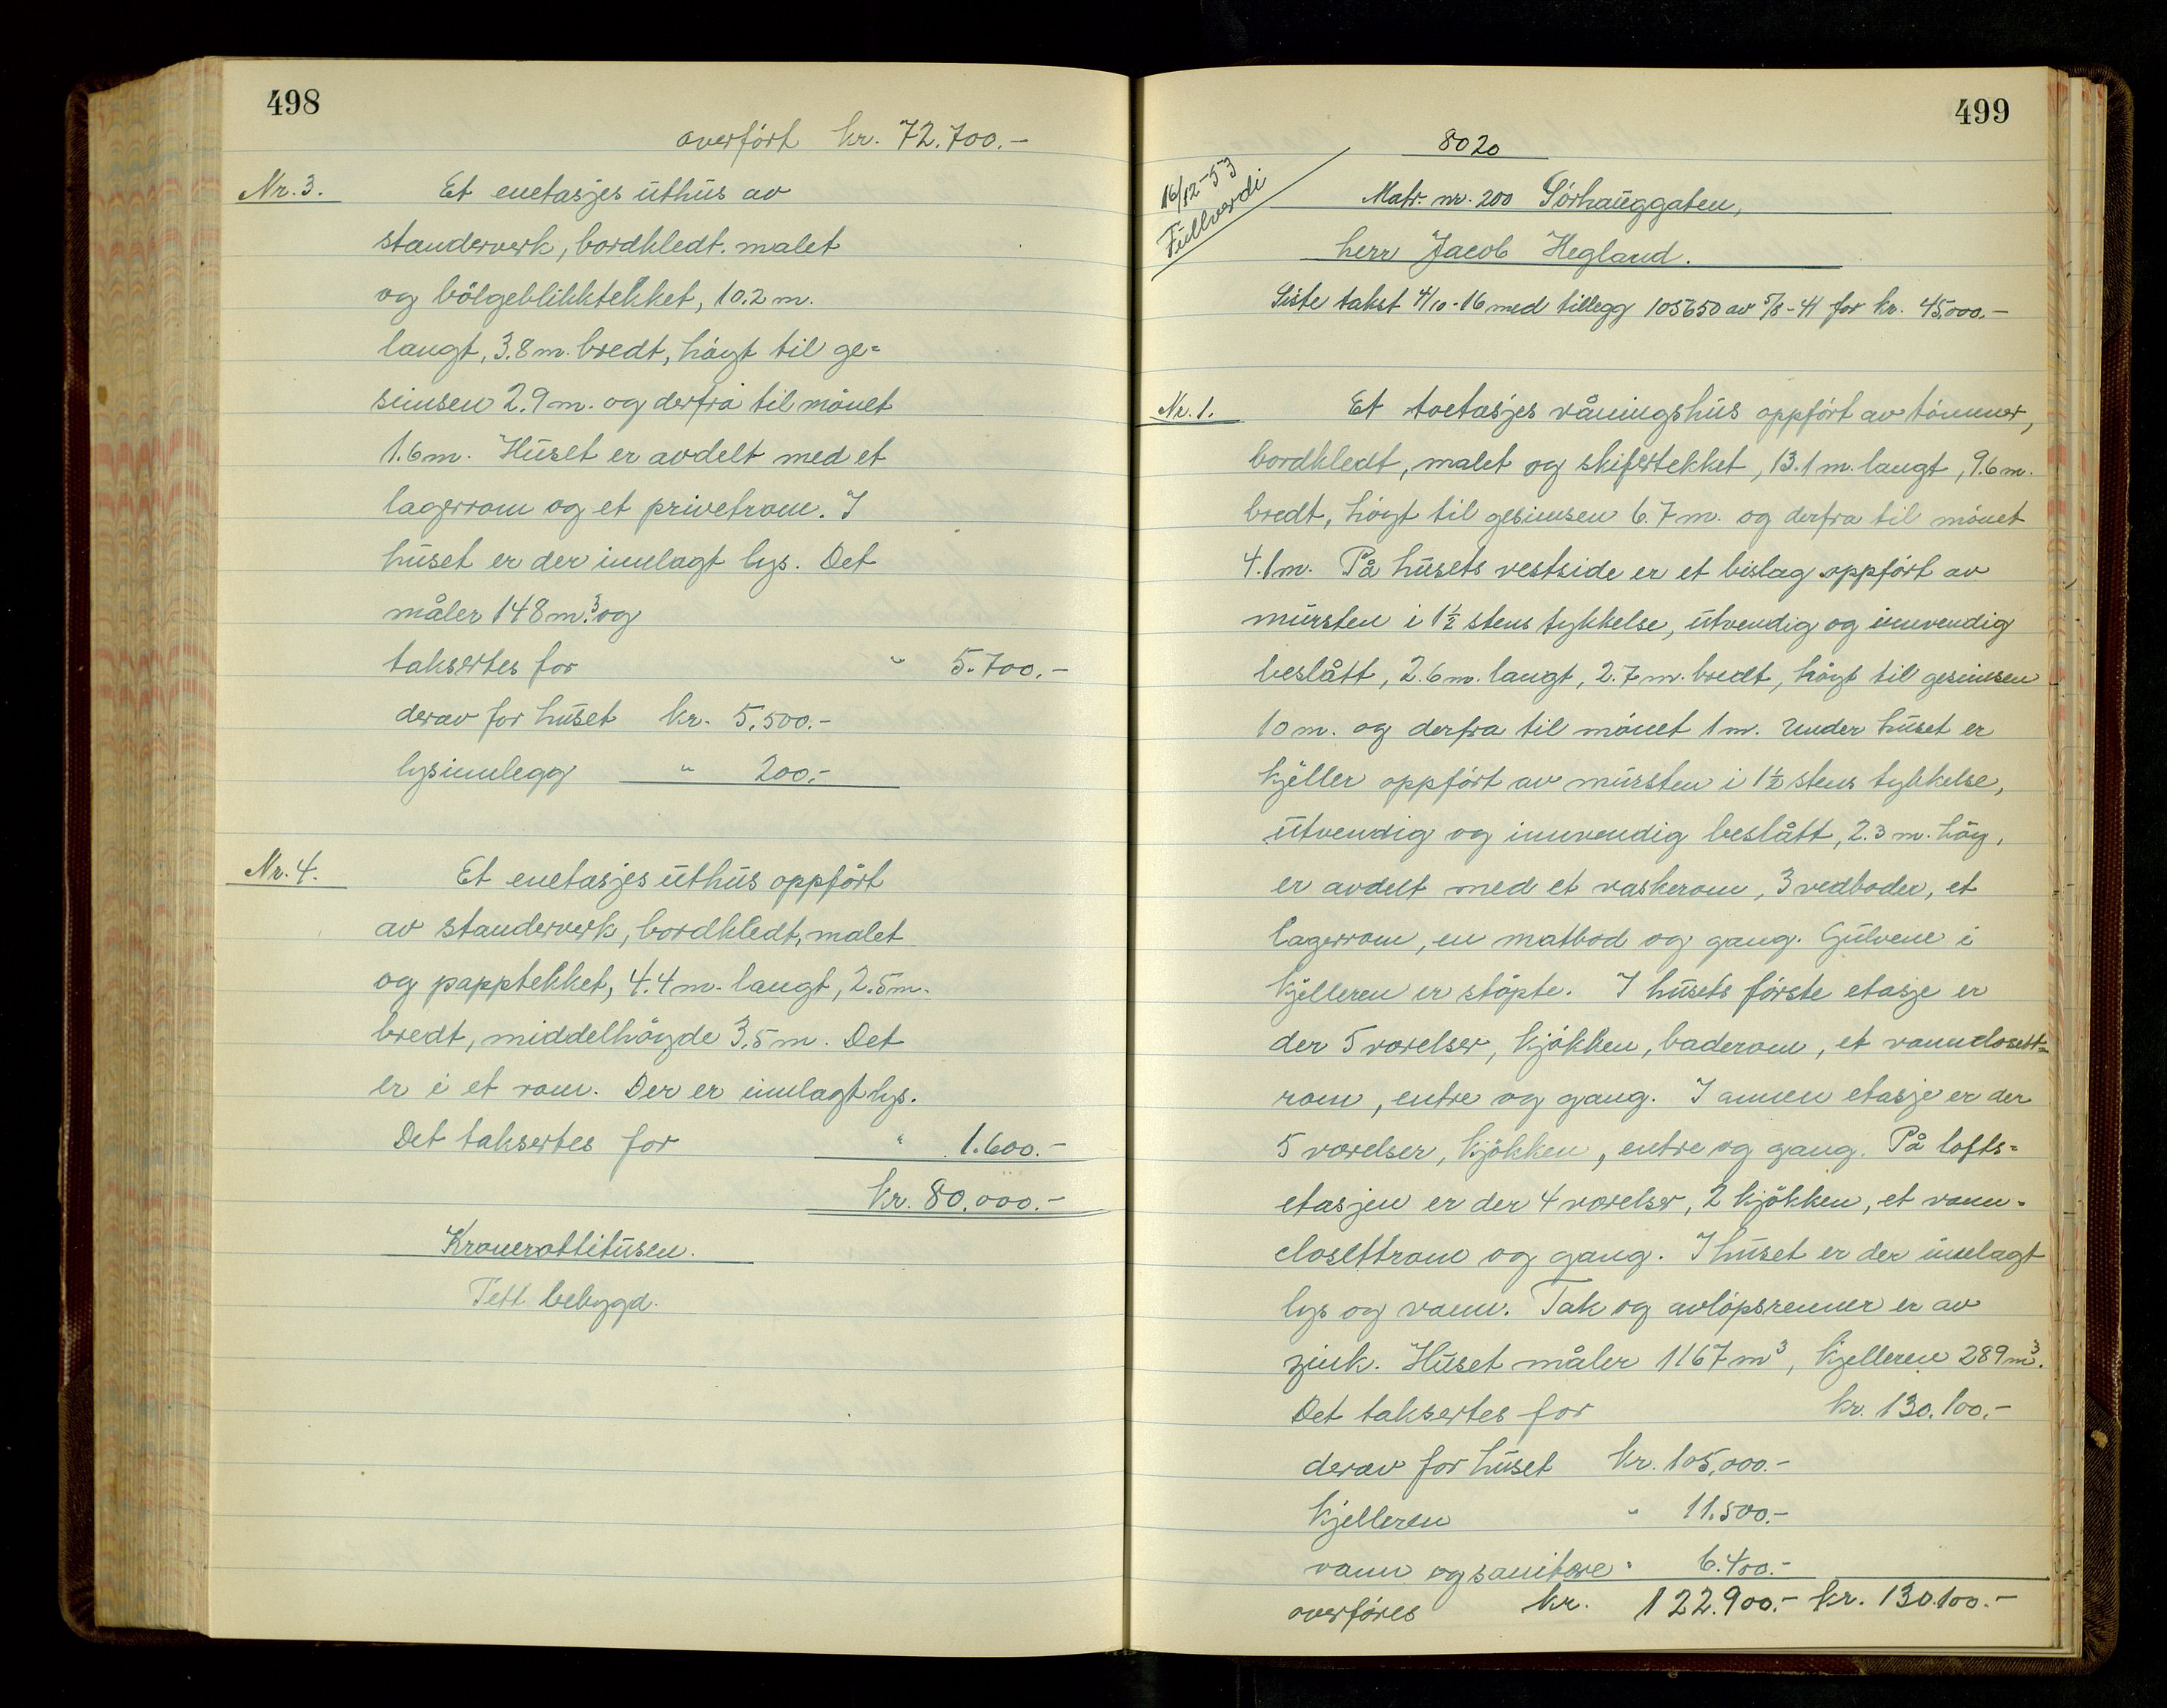 498
overført kr. 72.700.-
Nr. 3. Et enetasjes uthus av
standerverk, bordkledt. malet
og bölgeblikktekket, 10.2 m.
langt, 3.8 m. bredt, høgt til ge=
simsen 2.9 m. og derfra til mønet
1.6 m. Huset er avdelt med et
lagerrom og et privetrom. I
huset er der innlagt lys. Det
måler 148 m.³ og
taksertes for " 5.700.-
derav for huset kr. 5.500.-
lysinnlegg " 200.-
Nr. 4. Et enetasjes uthus oppført
av standerverk, bordkledt, malet
og papptekket, 4.4 m. langt, 2.5 m.
bredt, middelhøyde 3.5 m. Det
er i et rom. Der er innlagt lys.
Det taksertes for " 1.600.-
kr. 80.000.-
Tett bebygd.
499
8020
16/12-53
Fullverdi
Matr. nr. 200 Sørhauggaten,
herr Jacob Hegland.
Siste takst 4/10-16 med tillegg 105650 av 5/8-41 for kr. 45.000.-
Nr. 1. Et toetasjes våningshus oppført av tømmer,
bordkledt, malet og skifertekket, 13.1 m. langt, 9.6 m.
bredt, høgt til gesimsen 6.7 m. og derfra til mønet
4.1 m. På husets vestside er et bislag oppført av
mursten i 1½ stens tykkelse, utvendig og innvendig
beslått, 2.6 m. langt, 2.7 m. bredt, høgt til gesimsen
10 m. og derfra til mønet 1 m. Under huset er
kjeller oppført av mursten i 1½ stens tykkelse,
utvendig og innvendig beslått, 2.3 m. høg,
er avdelt med et vaskerom, 3 vedboder, et
lagerrom, en matbod og gang. Gulvene i
kjelleren er støpte. I husets første etasje er
der 5 værelser, kjøkken, baderom, et vannclosett=
rom, entre og gang. I annen etasje er der
5 værelser, kjøkken, entre og gang. På lofts=
etasjen er der 4 værelser, 2 kjøkken, et vann-
closettrom og gang. I huset er der innlagt
lys og vann. Tak og avløpsrenner er av
zink. Huset måler 1167 m³, kjelleren 289 m³.
Det taksertes for kr. 130.100.-
derav for huset kr. 105.000.-
kjelleren " 11.500.-
vann og sanitære " 6.400.-
overføres kr. 122.900.- kr. 130.100.-